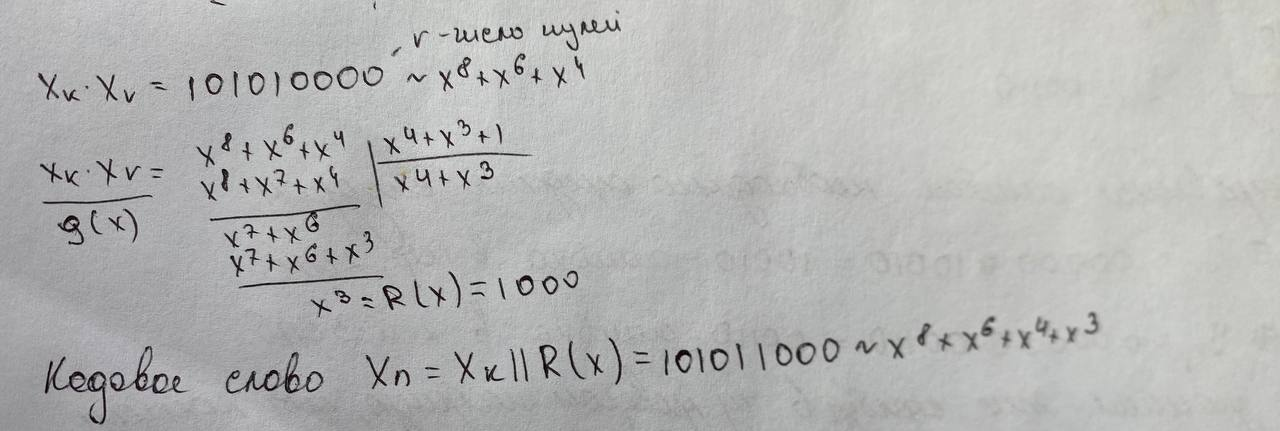 r-число нулей
Xₖ·Xᵣ = 101010000 ~ x⁸+x⁶+x⁴
x⁸+x⁶+x⁴ | x⁴+x³+1
Xₖ·Xᵣ = x⁸+x⁷+x⁴ | x⁴+x³
g(x)
x⁷+x⁶
x⁷+x⁶+x³
x³ = R(x) = 1000
Кодовое слово Xₙ = Xₖ||R(x) = 101011000 ~ x⁸+x⁶+x⁴+x³